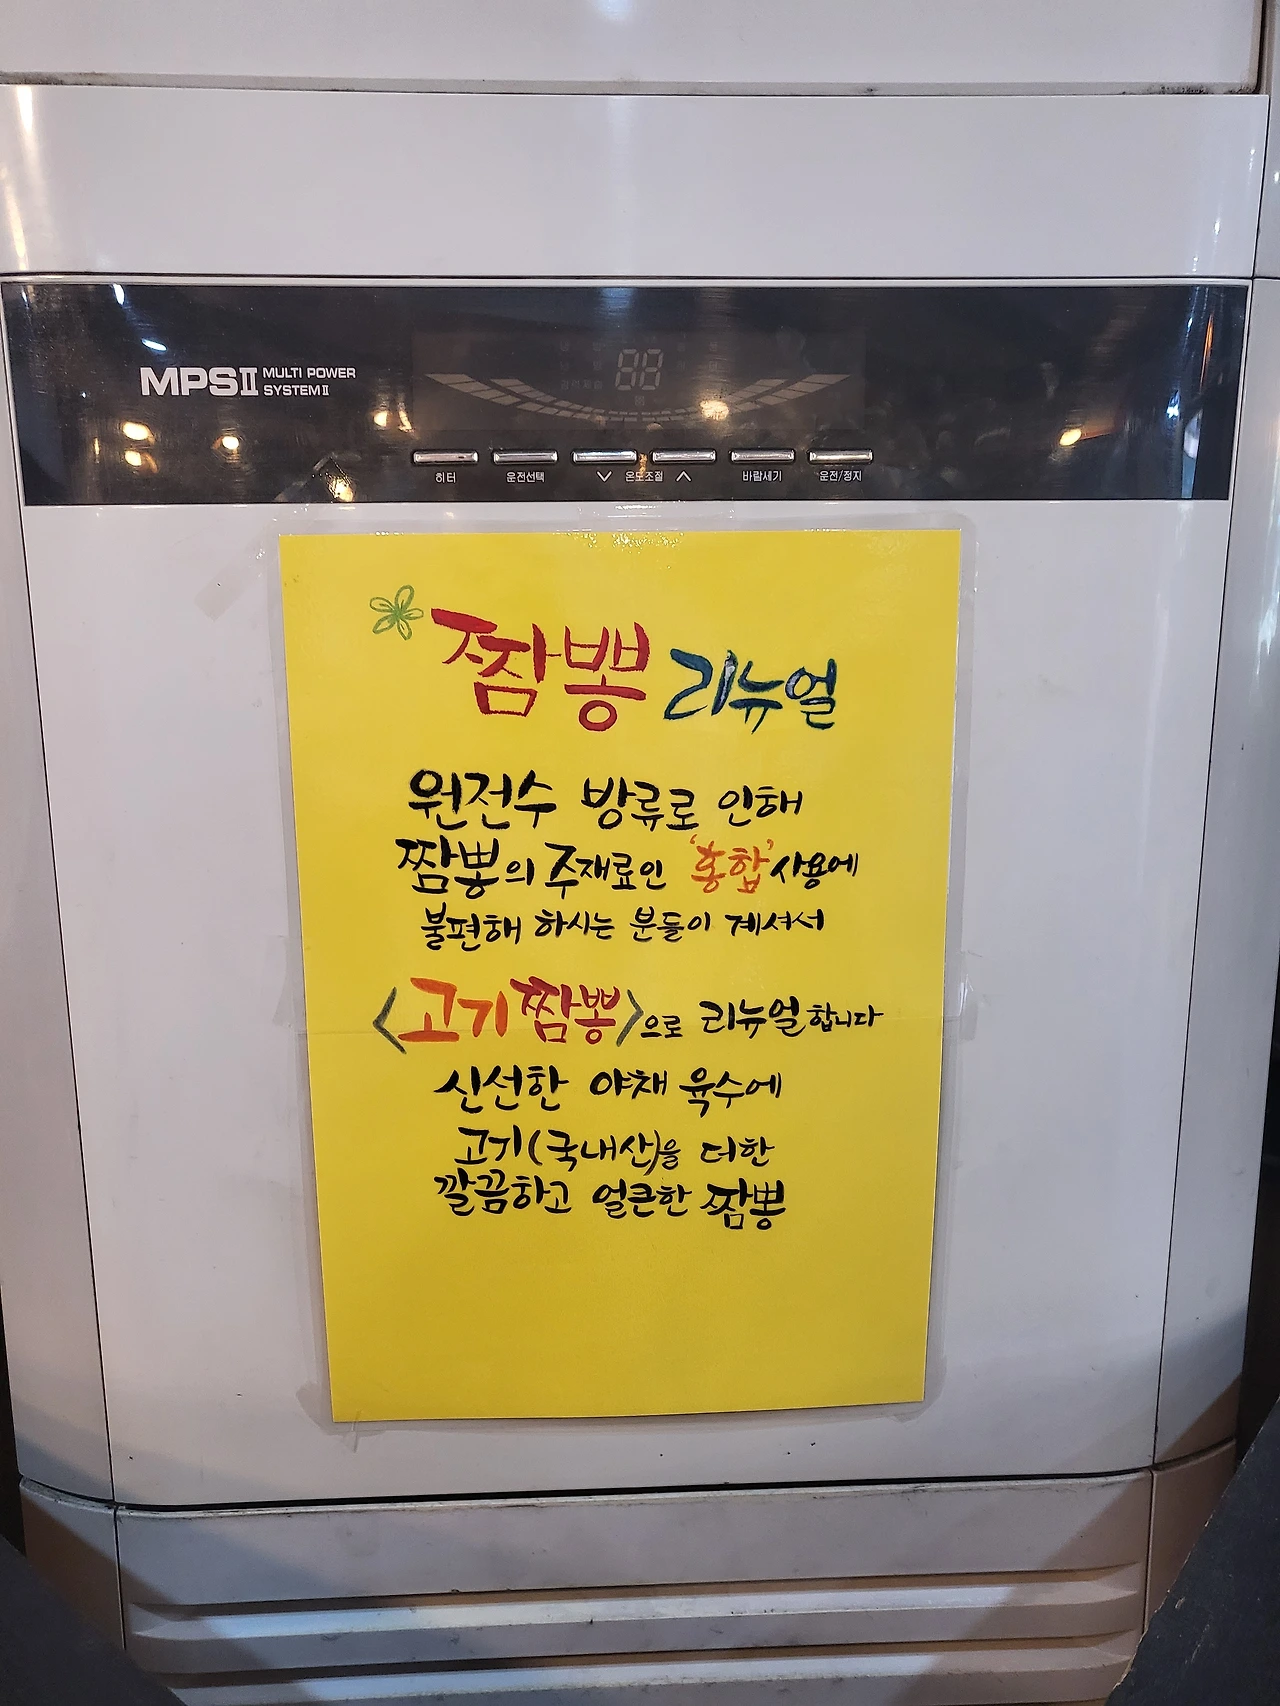 MPSⅡ MULTI POWER
SYSTEMⅡ
88
히터 운전선택 온도조절 바람세기 운전/정지
짬뽕 리뉴얼
원전수 방류로 인해
짬뽕의 주재료인 '홍합' 사용에
불편해 하시는 분들이 계셔서
<고기짬뽕>으로 리뉴얼합니다
신선한 야채 육수에
고기(국내산)을 더한
깔끔하고 얼큰한 짬뽕